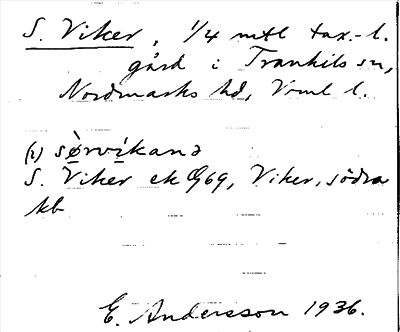 S. Viker, 1/4 mtl tax.-l.
gård i Trankils sn,
Nordmarks hd, Vrml l.
(i) sø̀rvíkana
S. Viker ek G69, Viker, södra
kb
E. Andersson 1936.